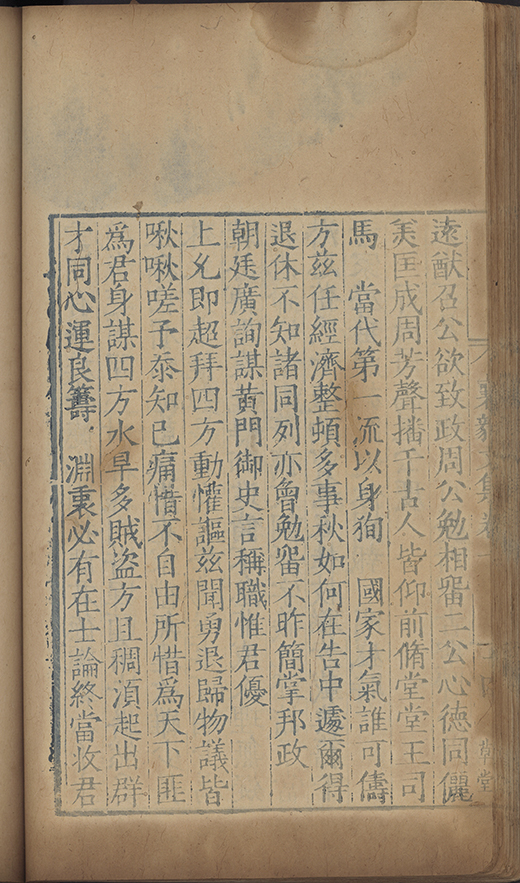 遠猷召公欲致政周公勉相畱二公心德同儷
美匡成周芳聲播千古人皆仰前脩堂堂王司
馬 當代第一流以身狥 國家才氣誰可儔
方茲任經濟整頓多事秋如何在告中遽爾得
退休不知諸同列亦曾勉畱不昨簡掌邦政
朝廷廣詢謀黃門御史言稱職惟君優
上允卽超拜四方動懽謳茲聞勇退歸物議皆
啾啾嗟予忝知己痛惜不自由所惜爲天下匪
爲君身謀四方水旱多賊盜方且稠湏起出群
才同心運良籌 淵衷必有在士論終當收君